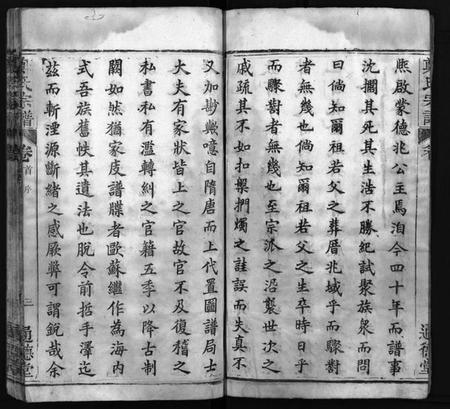 熙啟蒙德兆公主焉洎今四十年而譜事
沈擱其死其生浩不勝紀試聚族衆而問
曰倘知爾祖若父之葬厝兆域乎而驟對
者無幾也倘知爾祖若父之生卒時日乎
而驟對者無幾也至宗派之沿襲世次之
戚疏其不如扣槃捫燭之註誤而失真不
又加尠歟噫自隋唐而上代置圖譜局士
大夫有家狀皆上之官故官不及復稽之
私書私有濫轉糾之官籍五季以降古制
闕如然猶家庋譜牒者歐蘇繼作為海內
式吾族舊帙其遺法也脫令前哲手澤迄
茲而斬湮源斷緒之感厥弊可謂銳哉余
氏宗譜
卷首 序
三
通德堂